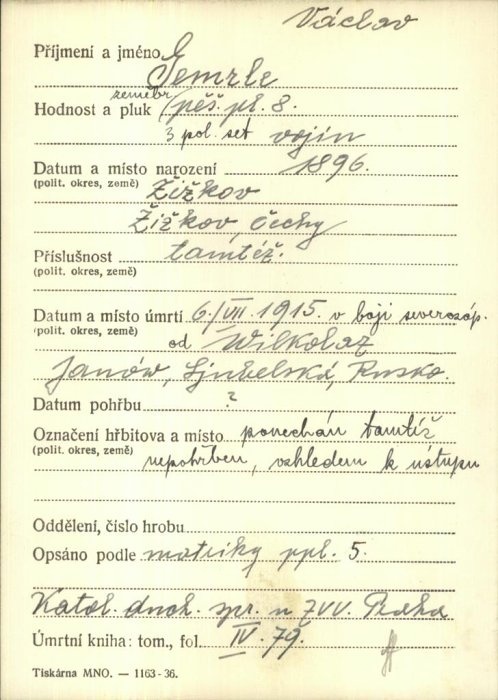 Václav
Příjmení a jméno
Gemrle
zeměbr.
Hodnost a pluk pěš. pl. 8.
3 pol. set vojín
Datum a místo narození 1896.
(polit. okres, země) Žižkov
Žižkov, Čechy
Příslušnost tamtéž.
(polit. okres, země)
Datum a místo úmrtí 6./VII. 1915. v boji severozáp.
(polit. okres, země) od Wilkolaz
Janów, Ljubelská, Rusko.
Datum pohřbu ?
Označení hřbitova a místo ponechán tamtéž
(polit. okres, země) nepohřben, vzhledem k ústupu
Oddělení, číslo hrobu
Opsáno podle matriky ppl. 5.
Katol. duch. spr. u ZVV. Praha
Úmrtní kniha: tom., fol. IV. 79.
Tiskárna MNO. — 1163-36.